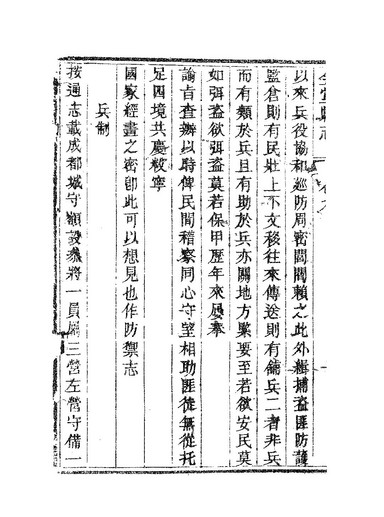 以來兵役協和巡防周密閭閻賴之此外緝捕盜匪防護
監倉則有民壯上下文移往來傳送則有鋪兵二者非兵
而有類於兵且有助於兵亦關地方緊要至若欲安民莫
如弭盜欲弭盜莫若保甲歷年來屢奉
諭旨查辦以時俾民間稽察同心守望相助匪徒無從托
足四境共慶敉寧
國家經畫之密卽此可以想見也作防禦志
兵制
按通志載成都城守額設叅將一員屬三營左營守備一